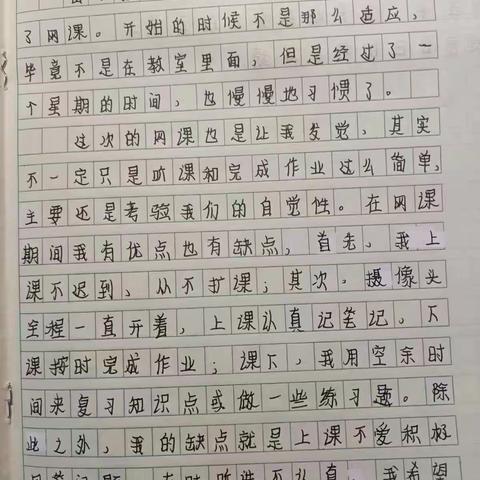 了网课。开始的时候不是那么适应,
毕竟不是在教室里面,但是经过了一
个星期的时间,也慢慢地习惯了。
这次的网课也是让我发觉,其实
不一定只是听课和完成作业这么简单,
主要还是考验我们的自觉性。在网课
期间我有优点也有缺点,首先,我上
课不迟到,从不旷课;其次,摄像头
全程一直开着,上课认真记笔记,下
课按时完成作业;课下,我用空余时
间来复习知识点或做一些练习题。除
此之外,我的缺点就是上课不爱积极